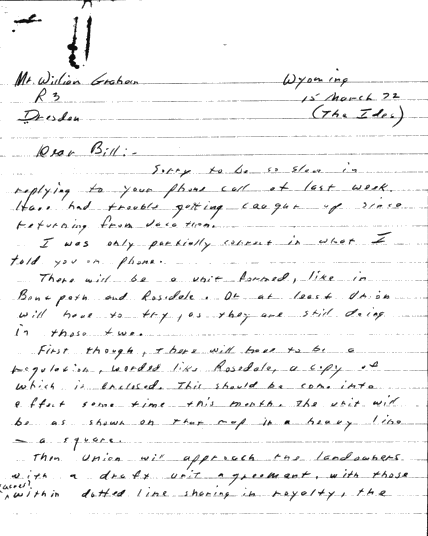 Mr. William Graham
Wyoming
R 3
15 March 72
Dresden
(The Ides)
Dear Bill:-
Sorry to be so slow in
replying to your phone call of last week.
Have had trouble getting caught up since
returning from vacation.
I was only partially correct in what I
told you on phone.
There will be a unit formed, like in
Bonepath and Rosedale. Or at least Union
will have to try, as they are still doing
in those two.
First though, there will have to be a
regulation, worded like Rosedale, a copy of
which is enclosed. This should be come into
effect some time this month. The unit will
be as shown on that map in a heavy line
- a square.
Then Union will approach the landowners
with a draft unit agreement, with those
(acres)
within dotted line sharing in royalty, the